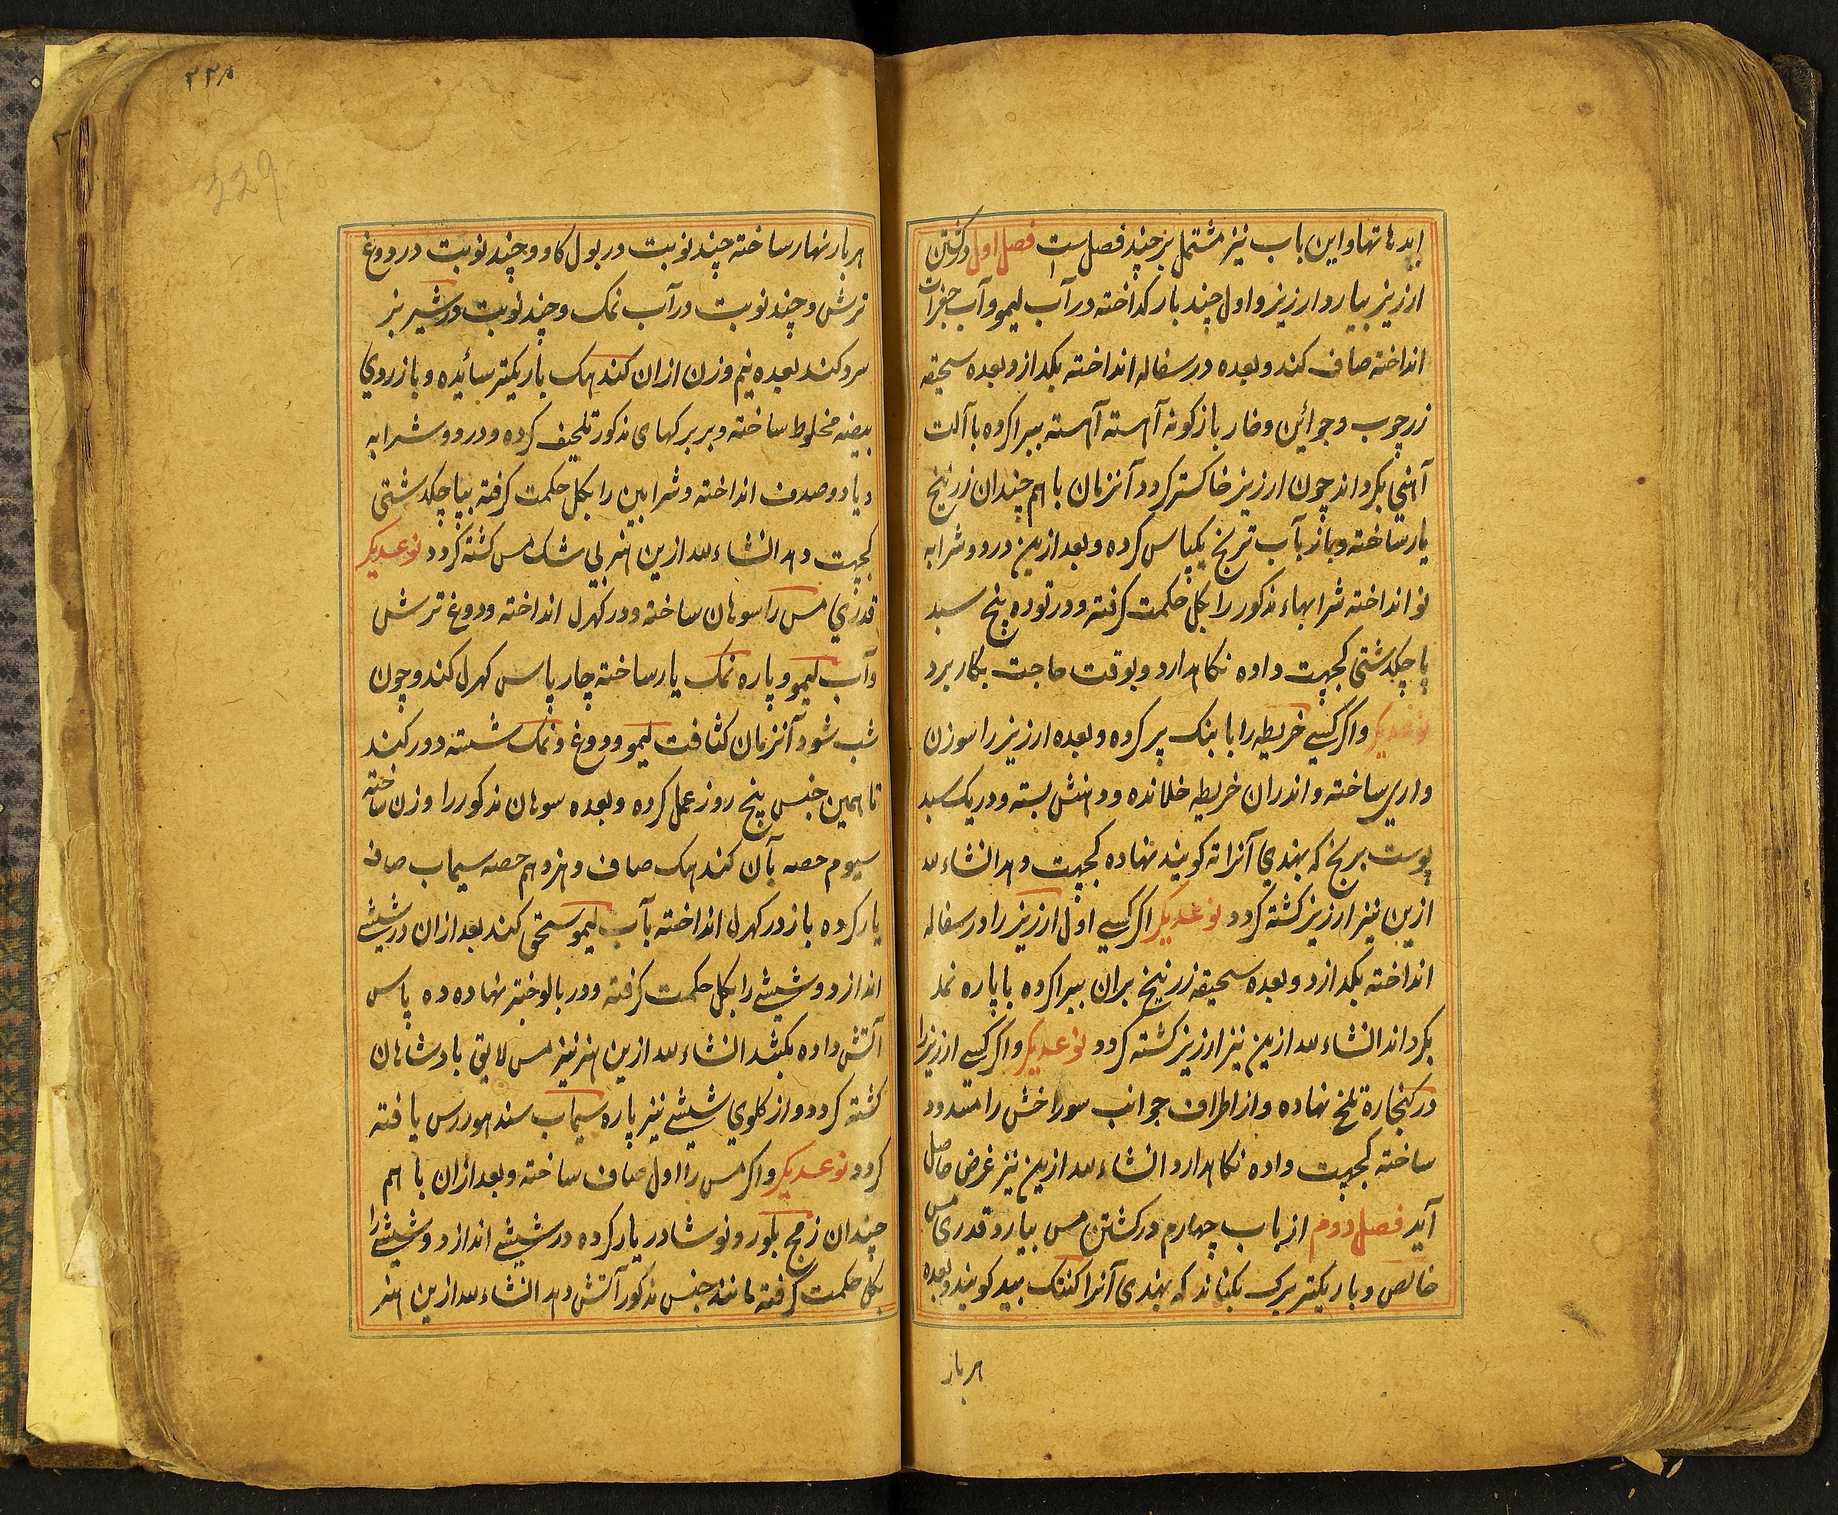 اید ها تها و این باب نیز مشتمل بر چند فصل ست فصل اول در کشتن
ارزیز بیارد ارزیز و اول چند بار کداخته در آب لیمو و آب جغرات
انداخته صاف کند و بعده در سفاله انداخته بکدازد و بعده سحیقه
زرچوب و جوائین و خار بازکونه آهسته آهسته ببراکرده با آلت
آهنی بکرداند چون ارزیز خاکستر کردد آنزمان با هم چندان زرنیخ
یار ساخته و باز بآب ترنج یکپاس کرده و بعد ازین در دو شرابه
نو انداخته شرابهاء مذکور را بکل حکمت کرفته و در توده پنج سبد
پاچکدشتی کجپت داده نکاهدارد و بوقت حاجت بکار برد
نوعدیکر و اکر کسی خریطه را با بنک پر کرده و بعده ارزیز را سوزن
واری ساخته و اندران خریطه خلانده و دهنش بسته و در یک سبد
پوست برنج که بهندی آنرا ته کویند نهاده کجپت دهد انشاءلله
ازین نیز ارزیز کشته کردد نوعدیکر اکر کسی اول ارزیز را در سفاله
انداخته بکدازد و بعده سحیقه زرنیخ بران ببراکرده با پاره نمد
بکرداند انشاءلله ازین نیز ارزیز کشته کردد نوعدیکر و اکر کسی ارزیز را
در کنجاره تلخ نهاده و از اطراف جوانب سوراخش را مسدود
ساخته کجپت داده نکاهدارد انشاءلله ازین نیز غرض حاصل
آید فصل دوم از باب چهارم در کشتن مس بیارد قدری مس
خالص و باریکتر برک بکناند که بهندی آنرا کنتک بید کویند و بعده
هر بار
۲۲۸
229
هر بار نهار ساخته چند نوبت در بول کاو و چند نوبت در دوغ
ترش و چند نوبت در آب نمک و چند نوبت در شیر بز
سرد کند بعده نیم وزن ازان کندهک باریکتر سائیده و با زردی
بیضه مخلوط ساخته و بر برکهای مذکور تلحیف کرده و در دو شرابه
و یا دو صدف انداخته و شرابین را بکل حکمت کرفته بپاچکدشتی
کجپت دهد انشاءلله ازین هنر بی شک مس کشته کردد نوعدیکر
قدری مس را سوهان ساخته و در کهرل انداخته و دوغ ترش
و آب لیمو و پاره نمک یار ساخته چار پاس کهرل کند و چون
شب شود آنزمان کثافت لیمو و دوغ و نمک شسته دور کند
تا همین جنس پنج روز عمل کرده و بعده سوهان مذکور را وزن ساخته
سیوم حصه بآن کندهک صاف و هژدهم حصه سیماب صاف
یار کرده باز در کهرل انداخته بآب لیمو سحق کند بعد ازان در شیشی
اندازد و شیشی را بکل حکمت کرفته و در بالوجنتر نهاده ده پاس
آتش داده بکشد انشاءلله ازین هنر نیز مس لایق بادشاهان
کشته کردد و از کلوی شیشی نیز پاره سیماب سندهوررس یافته
کردد نوعدیکر و اکر مس را اول صاف ساخته و بعد ازان با هم
چندان زمج بلور و نوشادر یار کرده در شیشی اندازد و شیشی را
بکل حکمت کرفته مانند جنس مذکور آتش دهد انشاءلله ازین هنر